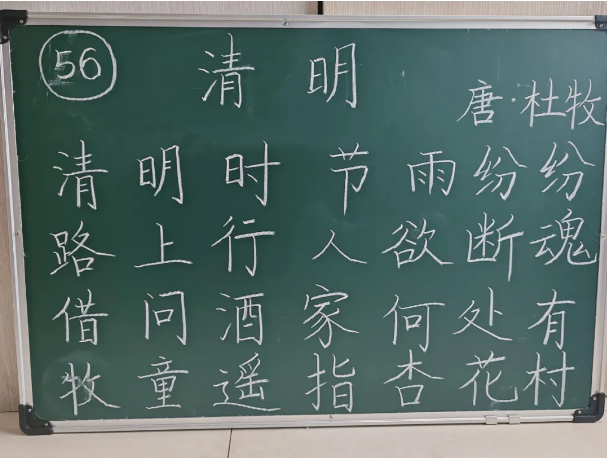 56 清明
唐·杜牧
清明时节雨纷纷
路上行人欲断魂
借问酒家何处有
牧童遥指杏花村